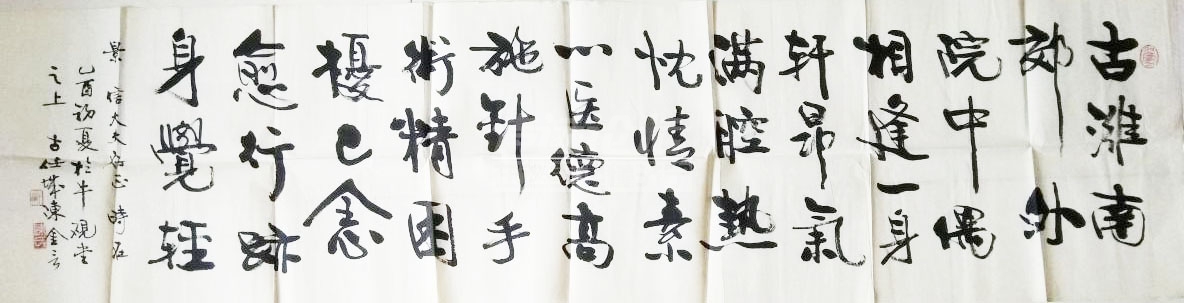 古潍南
郊外
院中偶
相逢一身
轩昂氣
满腔熱
忱情素
心医德高
施针手
術精困
擾已念
愈行跡
身覺輕
景信大夫正時在
乙酉初夏於牛觀堂
之上 古仕城陳金言